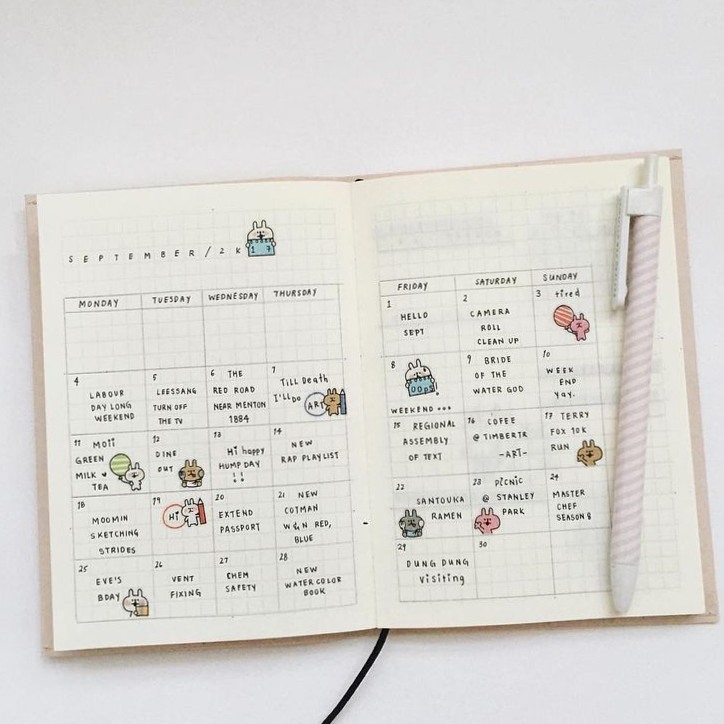 SEPTEMBER/2K
17
MONDAY TUESDAY WEDNESDAY THURSDAY
4
LABOUR
DAY LONG
WEEKEND
5
LEESSANG
TURN OFF
THE TV
6 THE
RED ROAD
NEAR MENTON
1884
7
Till Death
I'll do
ART
11 Moti
GREEN
MILK ♥
TEA
12
DINE
OUT
13
Hi happy
HUMP DAY
!!
14
NEW
RAP PLAYLIST
18
MOOMIN
SKETCHING
STRIDES
19
Hi
20
EXTEND
PASSPORT
21 NEW
COTMAN
W&N RED,
BLUE
25
EVE'S
BDAY
26
VENT
FIXING
27
CHEM
SAFETY
28
NEW
WATERCOLOR
BOOK
FRIDAY SATURDAY SUNDAY
1
HELLO
SEPT
2
CAMERA
ROLL
CLEAN UP
3 tired
8
OOPS
WEEKEND...
9 BRIDE
OF THE
WATER GOD
10
WEEK
END
yay.
15 REGIONAL
ASSEMBLY
OF TEXT
16 COFEE
@ TIMBERTR
-ART-
17 TERRY
FOX 10K
RUN
22
SANTOUKA
RAMEN
23 PICNIC
@ STANLEY
PARK
24
MASTER
CHEF
SEASON 8
29
DUNG DUNG
visiting
30